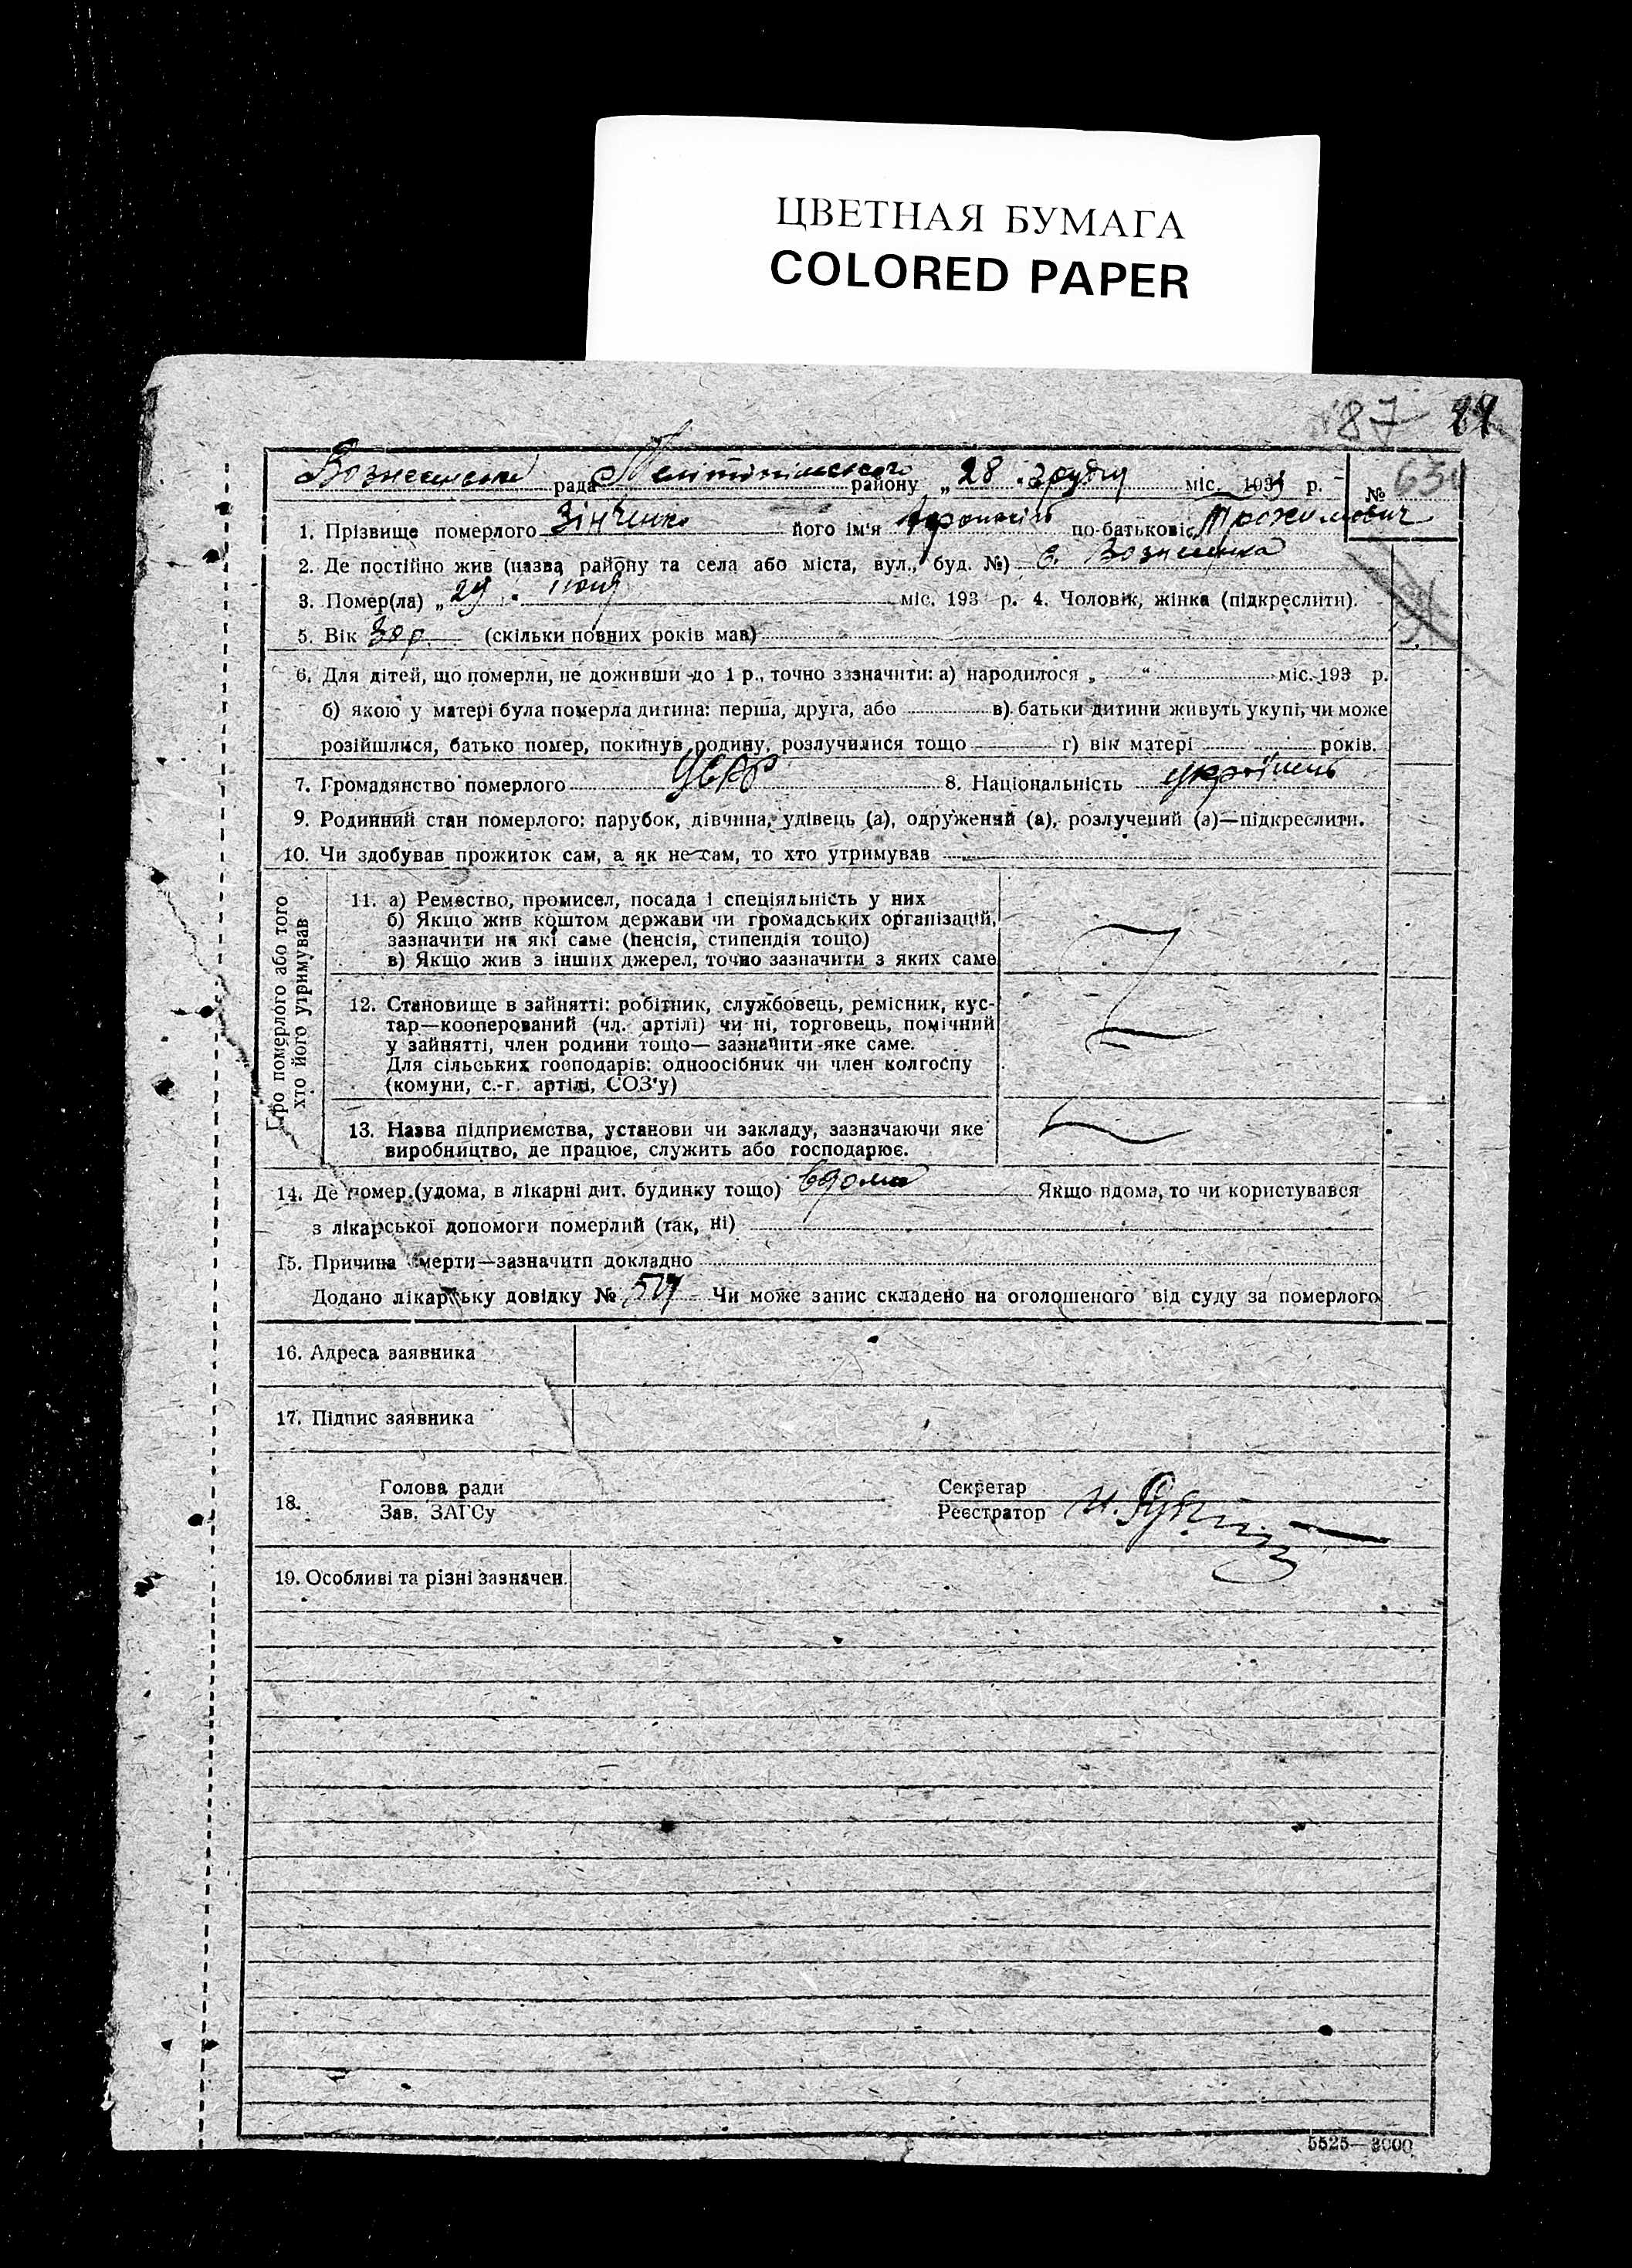 ЦВЕТНАЯ БУМАГА
COLORED PAPER
87
рада Мелітопільского району „ 28 " грудня міс. 193 р. № 634
1. Прізвище померлого Зінченко його ім'я по-батькові
2. Де постійно жив (назва району та села або міста, вул., буд. №) с. Вознесенка
3. Помер(ла) „ 29 " міс. 193 р. 4. Чоловік, жінка (підкреслити).
5. Вік 30 р. (скільки повних років мав)
6. Для дітей, що померли, не доживши до 1 р., точно зазначити: а) народилося „ " міс. 193 р.
б) якою у матері була померла дитина: перша, друга, або в) батьки дитини живуть укупі, чи може
розійшлися, батько помер, покинув родину, розлучилися тощо г) вік матері років.
7. Громадянство померлого УСРР 8. Національність українець
9. Родинний стан померлого: парубок, дівчина, удівець (а), одружений (а), розлучений (а)—підкреслити.
10. Чи здобував прожиток сам, а як не сам, то хто утримував
Про померлого або того
хто його утримував
11. а) Ремество, промисел, посада і спеціяльність у них
б) Якщо жив коштом держави чи громадських організацій,
зазначити на які саме (пенсія, стипендія тощо)
в) Якщо жив з інших джерел, точно зазначити з яких саме
12. Становище в зайнятті: робітник, службовець, ремісник, кус-
тар—кооперований (чл. артілі) чи ні, торговець, помічний
у зайнятті, член родини тощо— зазначити яке саме.
Для сільських господарів: одноосібник чи член колгоспу
(комуни, с.-г. артілі, СОЗ'у)
13. Назва підприємства, установи чи закладу, зазначаючи яке
виробництво, де працює, служить або господарює.
14. Де помер (удома, в лікарні дит. будинку тощо) вдома Якщо вдома, то чи користувався
з лікарської допомоги померлий (так, ні)
15. Причина смерти—зазначити докладно
Додано лікарську довідку № Чи може запис складено на оголошеного від суду за померлого
16. Адреса заявника
17. Підпис заявника
18. Голова ради Секретар
Зав. ЗАГСу Реєстратор
19. Особливі та різні зазначен.
5525—3000